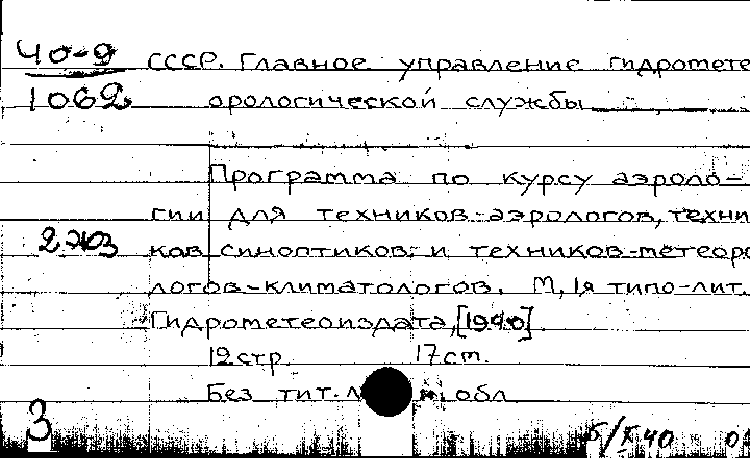 40-9 СССР. Главное управление гидромете
1062 орологической службы
Программа по курсу аэроло-
гии для техников-аэрологов, техни
2 экз ков синоптиков и техников-метеоро
логов-климатологов. М, 1я типо-лит.
Гидрометеоиздата, [1940].
12 стр. 17 cm.
Без тит. л. обл
3
б/г 40